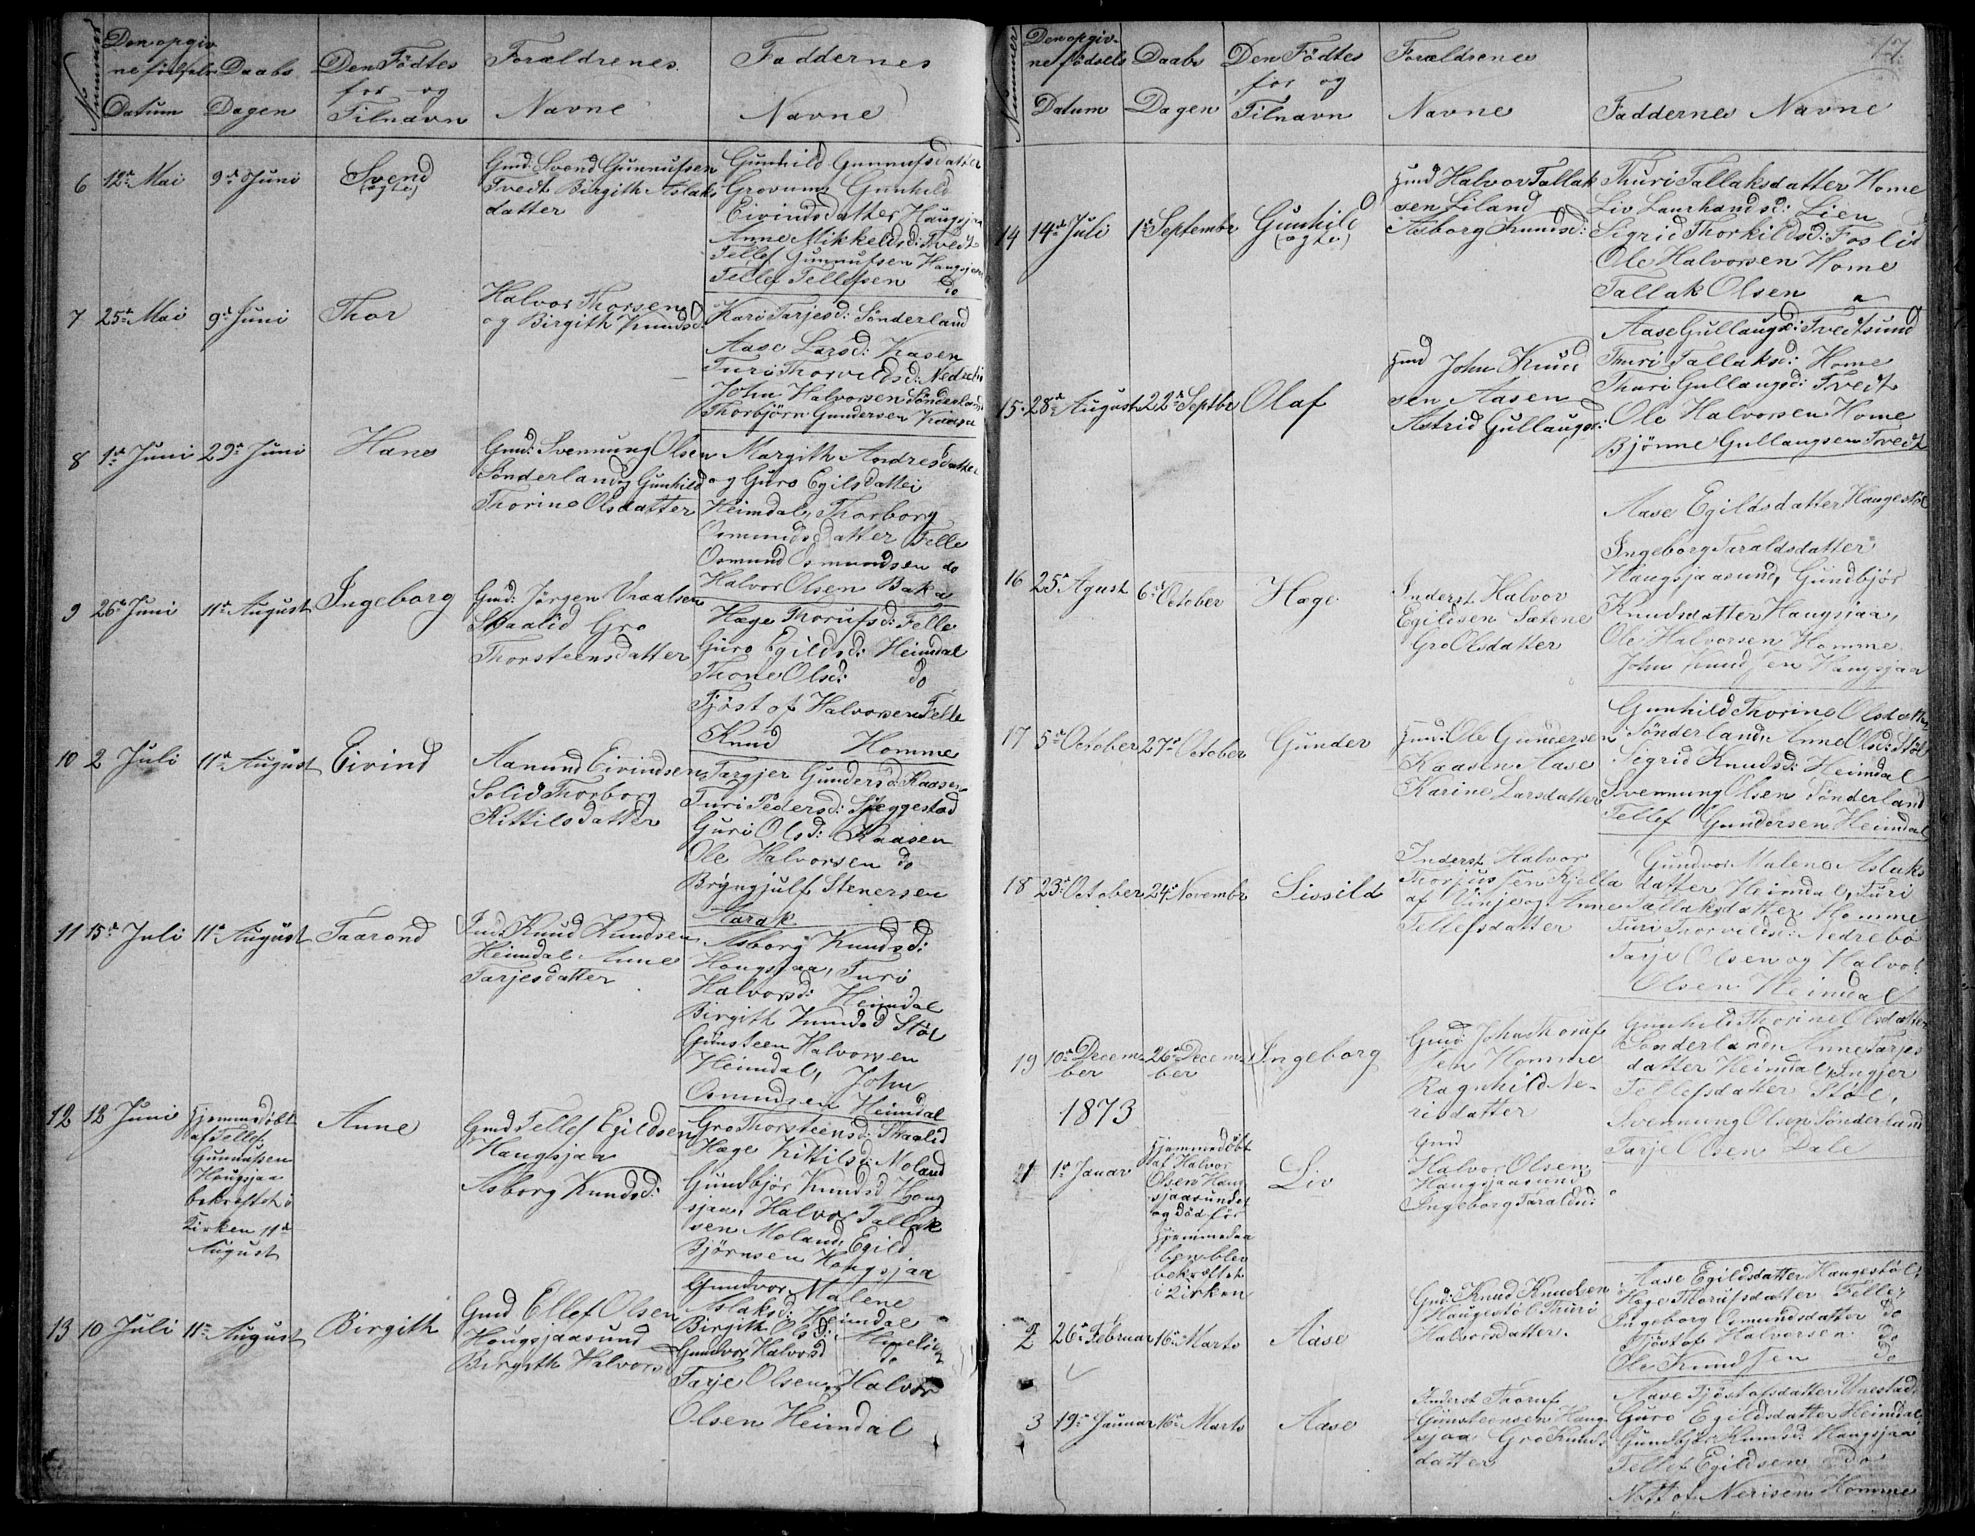 No Nummer
Den opgiv
ne fødsels
Datum
Daabs
Dagen
Den Födtes
for og
Tilnavn
Forældrenes
Navne
Faddernes
Navne
6 12te Mai 9de Juni Svend
(ægte)
Gmd. Svend Gunnufsen
Tvedt Birgith Aslaks
datter
Gunhild Gunnufsdatter
Grovum Gunhild
Eivindsdatter Haugsjaa
Anne Mikkelsd: Tvedt
Tellef Gunnufsen Haugsjaa
Tellef Tellefsen do
7 25de Mai 9de Juni Thor
Halvor Thorsen
og Birgith Knudsd:
Kari Tarjesd: Sönderland
Aase Larsd: Kasen
Turi Thorvildsd: Nedrebø
John Halvorsen Sönderland
Thorbjörn Gundersen Kaasen
8 1de Juni 29de Juni Hans
Gmd: Svennung Olsen
Sönderland, Gunhild
Thorine Olsdatter
Margith Andresdatter
og Guro Egilsdatter
Heimdal, Thorborg
Osmundsdatter Felle
Osmund Osmundsen do
Halvor Olsen Baka
9 26de Juni 11de August Ingeborg
Gmd: Jörgen Vraalsen
Skaalid Gro
Thorsteensdatter
Hæge Thorufsd: Felle
Guro Egildsd: Heimdal
Thone Olsd: do
Tjöstof Halvorsen Felle
Knud Homme
10 2 Juli 11de August Eivind
Aanund Eivindsen
Solid Thorborg
Kittilsdatter
Targjer Gundersd: Kaasen
Turi Pedersd: Skeggestad
Guri Olsd: Kaasen
Ole Halvorsen do
Bryngjulf Stenersen
Harak
11 15de Juli 11de August Taarand
Ind: Knud Knudsen
Heimdal Anne
Tarjesdatter
Asborg Knudsd:
Hougsjaa, Turi
Halvorsd: Heimdal
Birgith Knudsd Stöl
Gunsteen Halvorsen
Heimdal, John
Osmundsen Heimdal
12 12 Juni
Hjemmedöbt
af Tellef
Gunnufsen
Hougsjaa
bekræftet i
Kirken 11te
August
Anne
Gmd Tellef Egildsen
Haugsjaa
Asborg Knudsd:
Gro Thorsteensd: Skaalid
Hæge Kittilsd: Moland
Gundbjør Knudsd Houg
sjaa, Halvor Tallak
sen Moland, Egild
Björnsen Hougsjaa
13 10 Juli 11te August Birgith
Gmd Ellef Olsen
Hougsjaasund
Birgith Halvorsd
Gundvor Malene
Aslaksd: Heimdal
Birgith Olsd:
Gundvor Halvorsd do
Tarje Olsen, Halvor
Olsen Heimdal
17
Nummer
Den opgiv-
ne födsels
Datum
Daabs
Dagen
Den Födtes
for og
Tilnavn
Forældrenes
Navne
Faddernes Navne
14 14de Juli 1te Septembr Gunhild
(ægte)
Gmd Halvor Tallak
sen Liland
Asborg Knudsd:
Thuri Tallaksdatter Home
Liv Laurhandsd: Lien
Sigrid Thorkildsd: Foslid
Ole Halvorsen Home
Tallak Olsen
15 28de August 22de Septbr Olaf
Gmd John Knud
sen Aasen
Astrid Gullaugsd:
Aase Gullaugsd: Tvedtsund
Thuri Tallaksd: Home
Thuri Gullaugsd: Tvedt
Ole Halvorsen Home
Bjönne Gullaugsen Tvedt
16 25de Agust 6de October Hæge
Inderst Halvor
Egildsen Sætene
Gro Olsdatter
Aase Egildsdatter Haugestöl
Ingeborg Taraldsdatter
Haugsjaasund, Gundbjör
Knudsdatter Haugsjaa,
Ole Halvorsen Homme
John Knudsen Haugsjaa
17 5de October 27de October Gunder
Gmd: Ole Gundersen
Kaasen Aase
Karine Larsdatter
Gunhild Thorine Olsdatter
Sönderland, Anne Olsd: Stöl
Sigrid Knudsd: Heimdal
Svennung Olsen Sönderland
Tellef Gundersen Heimdal
18 23de October 24de Novembr Sissild
Inderst Halvor
Thorjussen Kjella
af Vinje og Anne
Tellefsdatter
Gundvor Malene Aslaks
datter Heimdal, Turi
Tallaksdatter Homme
Turi Thorvildsd: Nedrebö
Tarje Olsen og Halvor
Olsen Heimdal
19 10de Decem-
ber
26de Decem-
ber
Ingeborg
Gmd Johns Thoruf
sen Homme
Ragnhild Ne-
risdatter
Gunhild Thorine Olsdatter
Sönderland Anne Tarjes
datter Heimdal, Ingjer
Tellefsdatter Stöl,
Svennung Olsen Sönderland
Tarje Olsen Dale
1873
1 1te Januar
Hjemmedöbt
af Halvor
Olsen Haug
sjaasundet
og död för
Hjemmedaa
ben blev
bekræftet
i Kirken
Liv
Gmd
Halvor Olsen
Haugsjaasund
Ingeborg Taraldsd:
2 26de Februar 16de Marts Aase
Gmd: Knud Knudsen
Haugestöl Thuri
Halvorsdatter.
Aase Egildsdatter Haugestöl
Hege Thorufsdatter Felle
Ingeborg Osmundsdatter do
Tjöstof Halvorsen do
Ole Knudsen do
3 19de Januar 16de Marts Aase
Inderst Thoruf
Gunsteensen Haug
sjaa Gro Knuds
datter
Aase Tjöstofsdatter Vrestad
Guro Egildsdatter Heimdal
Gundbjör Knudsd: Haugsjaa
Tellef Egildsen do
Nottof Nerisen Homme